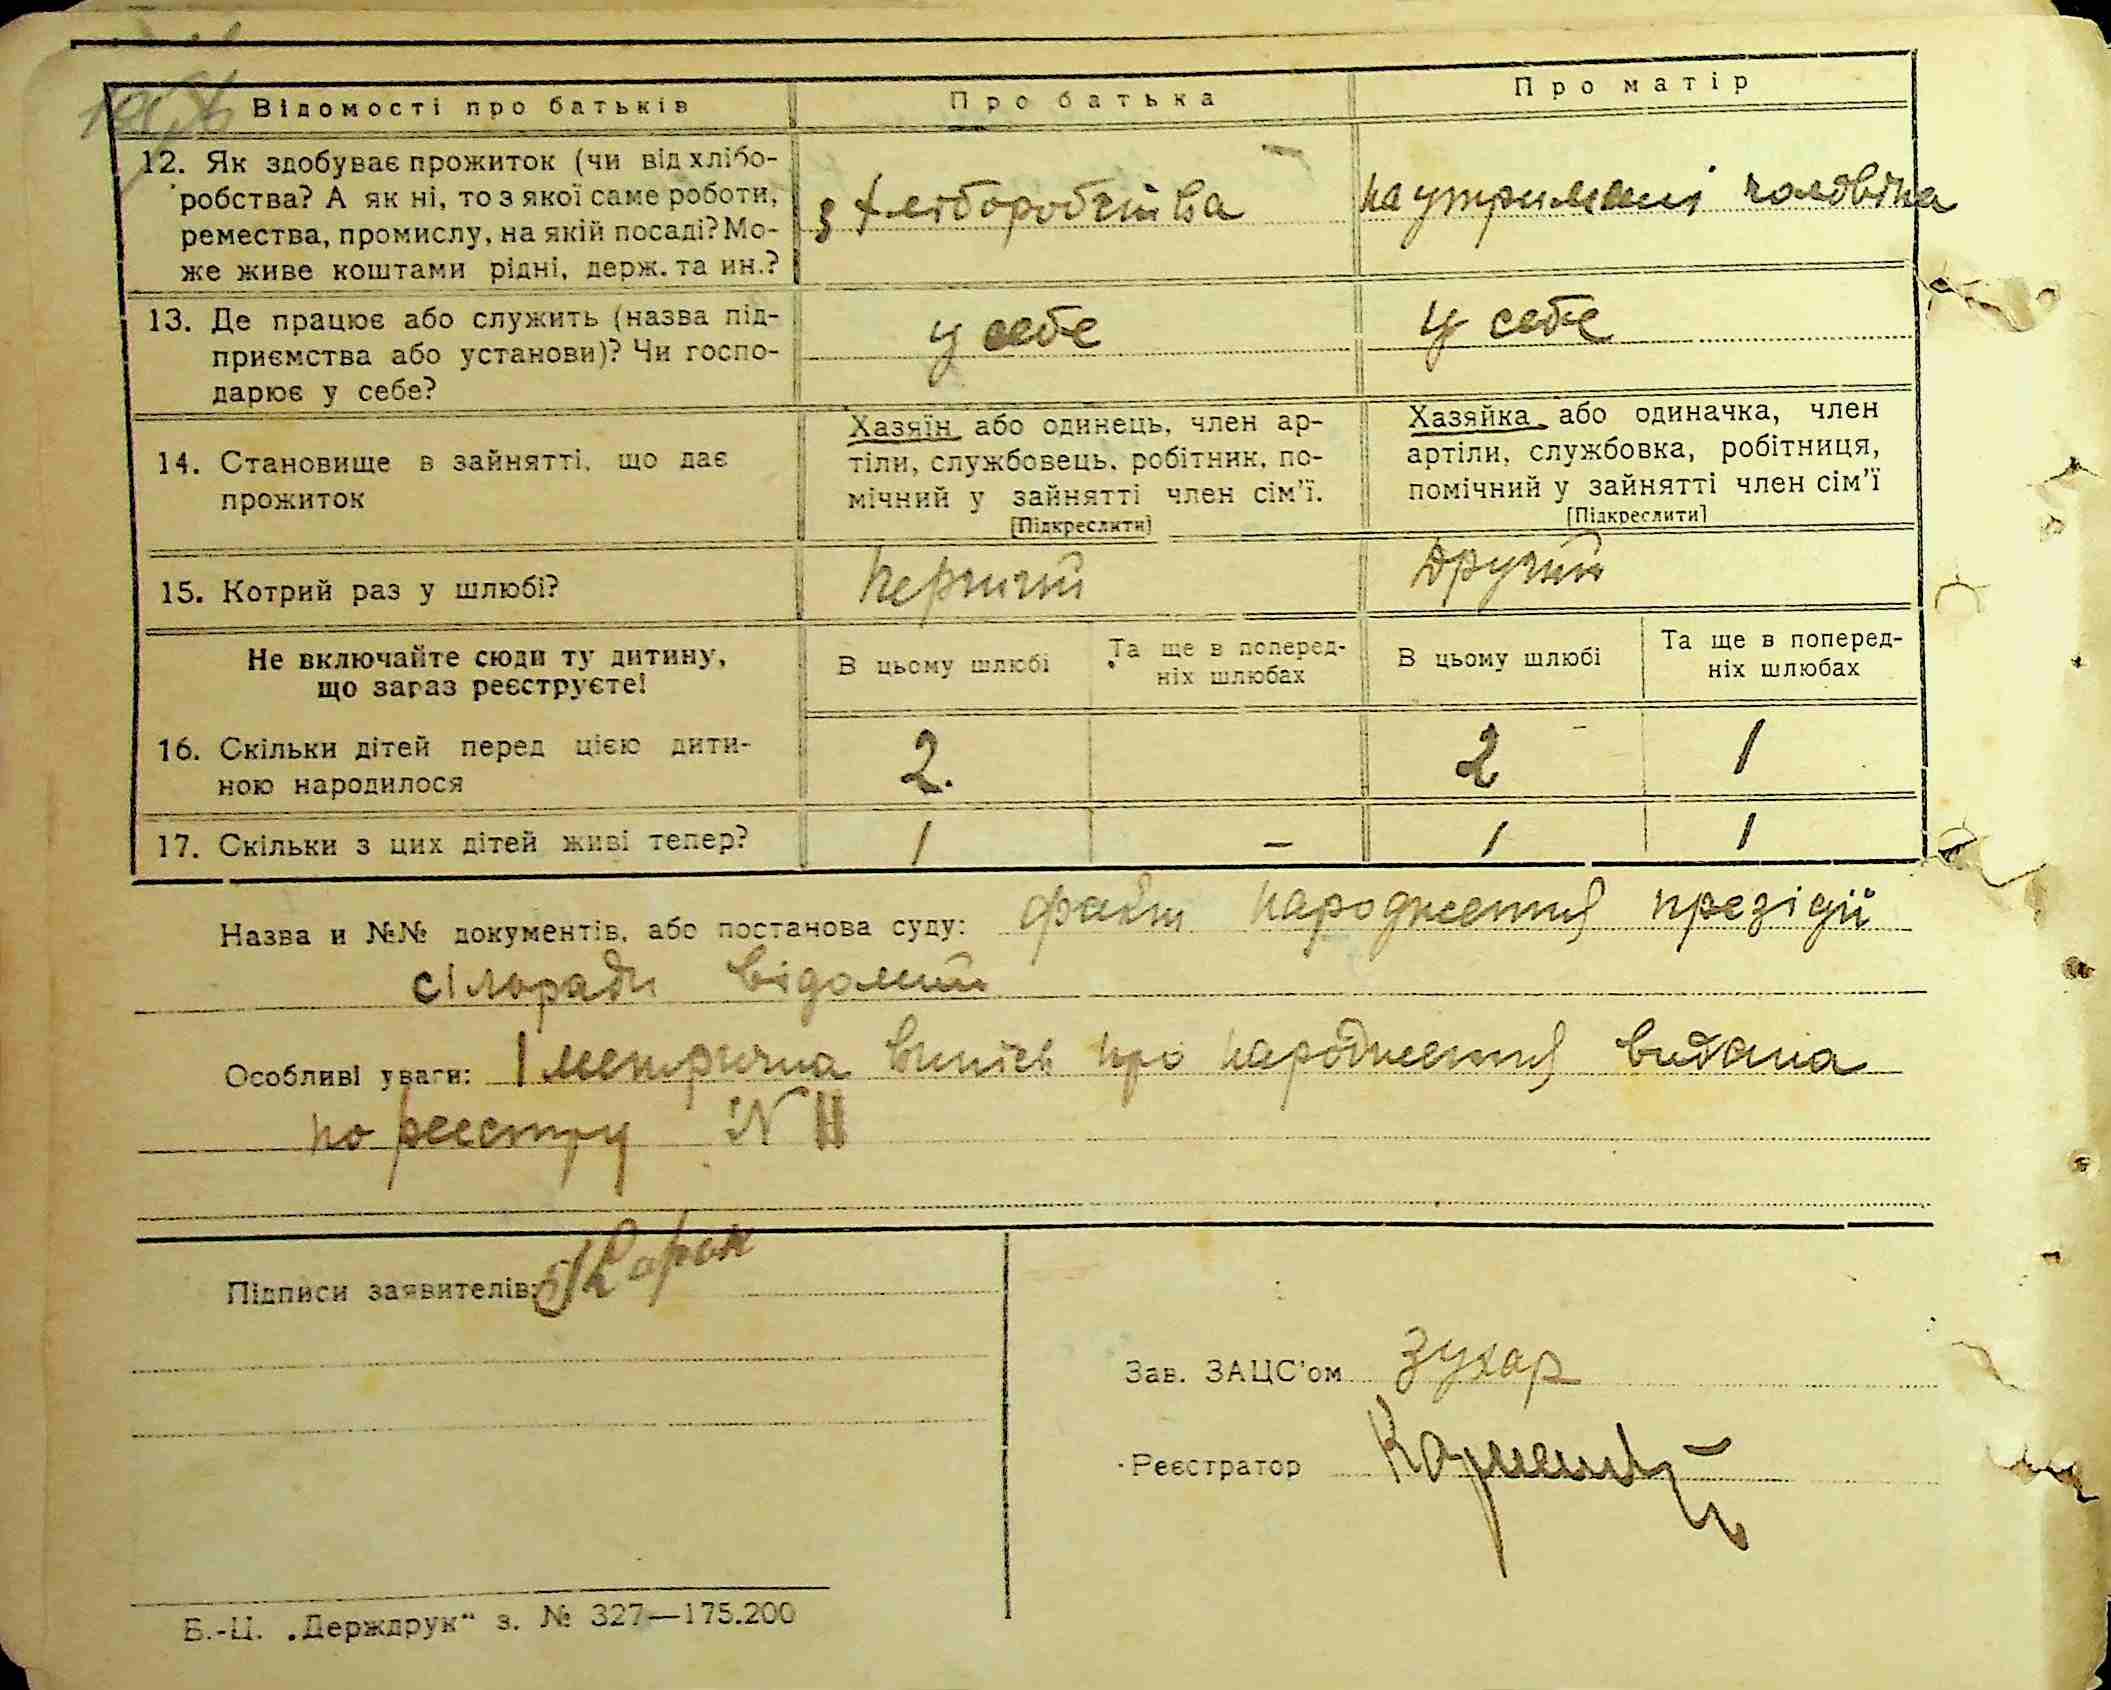 Відомості про батьків
Про батька
Про матір
12. Як здобуває прожиток (чи від хлібо-
робства? А як ні, то з якої саме роботи,
ремества, промислу, на якій посаді? Мо-
же живе коштами рідні, держ. та ин.?
з хліборобства
на утримані чоловіка
13. Де працює або служить (назва під-
приємства або установи)? Чи госпо-
дарює у себе?
у себе
у себе
14. Становище в зайнятті, що дає
прожиток
Хазяїн або одинець, член ар-
тіли, службовець, робітник, по-
мічний у зайнятті член сім'ї.
[Підкреслити]
Хазяйка або одиначка, член
артіли, службовка, робітниця,
помічний у зайнятті член сім'ї
[Підкреслити]
15. Котрий раз у шлюбі?
перший
другий
Не включайте сюди ту дитину,
що зараз реєструєте!
В цьому шлюбі
Та ще в поперед-
ніх шлюбах
В цьому шлюбі
Та ще в поперед-
ніх шлюбах
16. Скільки дітей перед цією дити-
ною народилося
2.
2
1
17. Скільки з цих дітей живі тепер?
1
–
1
1
Назва и №№ документів, або постанова суду: факт народження президії
сілоради відомий
Особливі уваги: 1 метрична випісь про народження видана
по реєстру N 11
Підписи заявителів:
Зав. ЗАЦС'ом Зухар
Реєстратор
Б.-Ц. „Держдрук" з. № 327—175.200